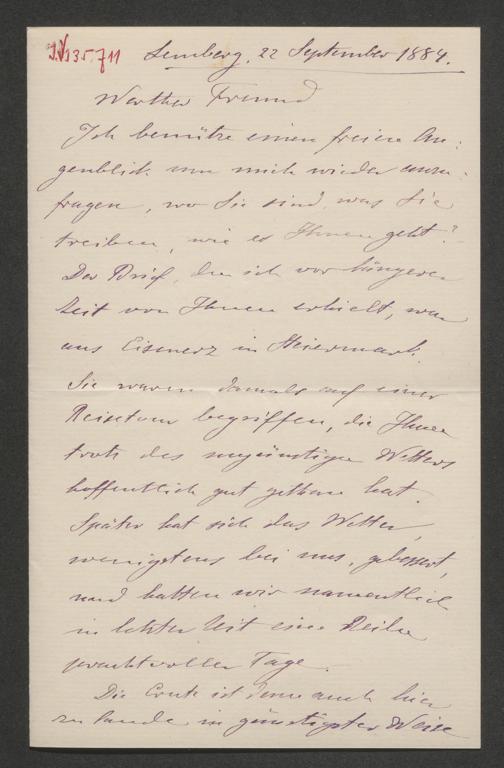 I.N. 135.711
Lemberg, 22 September 1884.
Werther Freund
Ich benütze einen freien Au-
genblick um mich wieder anzu-
fragen, wo Sie sind, was Sie
treiben, wie es Ihnen geht?
Der Brief, den ich vor längerer
Zeit von Ihnen erhielt, war
aus Eisenerz in Steiermark.
Sie waren damals auf einer
Reisetour begriffen, die Ihnen
trotz des ungünstigen Wetters
hoffentlich gut gethan hat.
Später hat sich das Wetter,
wenigstens bei uns, gebessert,
und hatten wir namentlich
in letzter Zeit eine Reihe
prachtvoller Tage.
Die Ernte ist denn auch hier
zu Lande in günstigster Weise